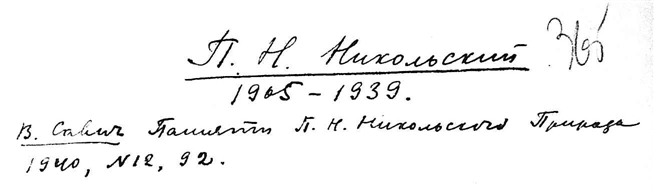 П. Н. Никольский 365
1905 – 1939.
В. Савич Памяти П. Н. Никольского Природа
1940, N12, 92.